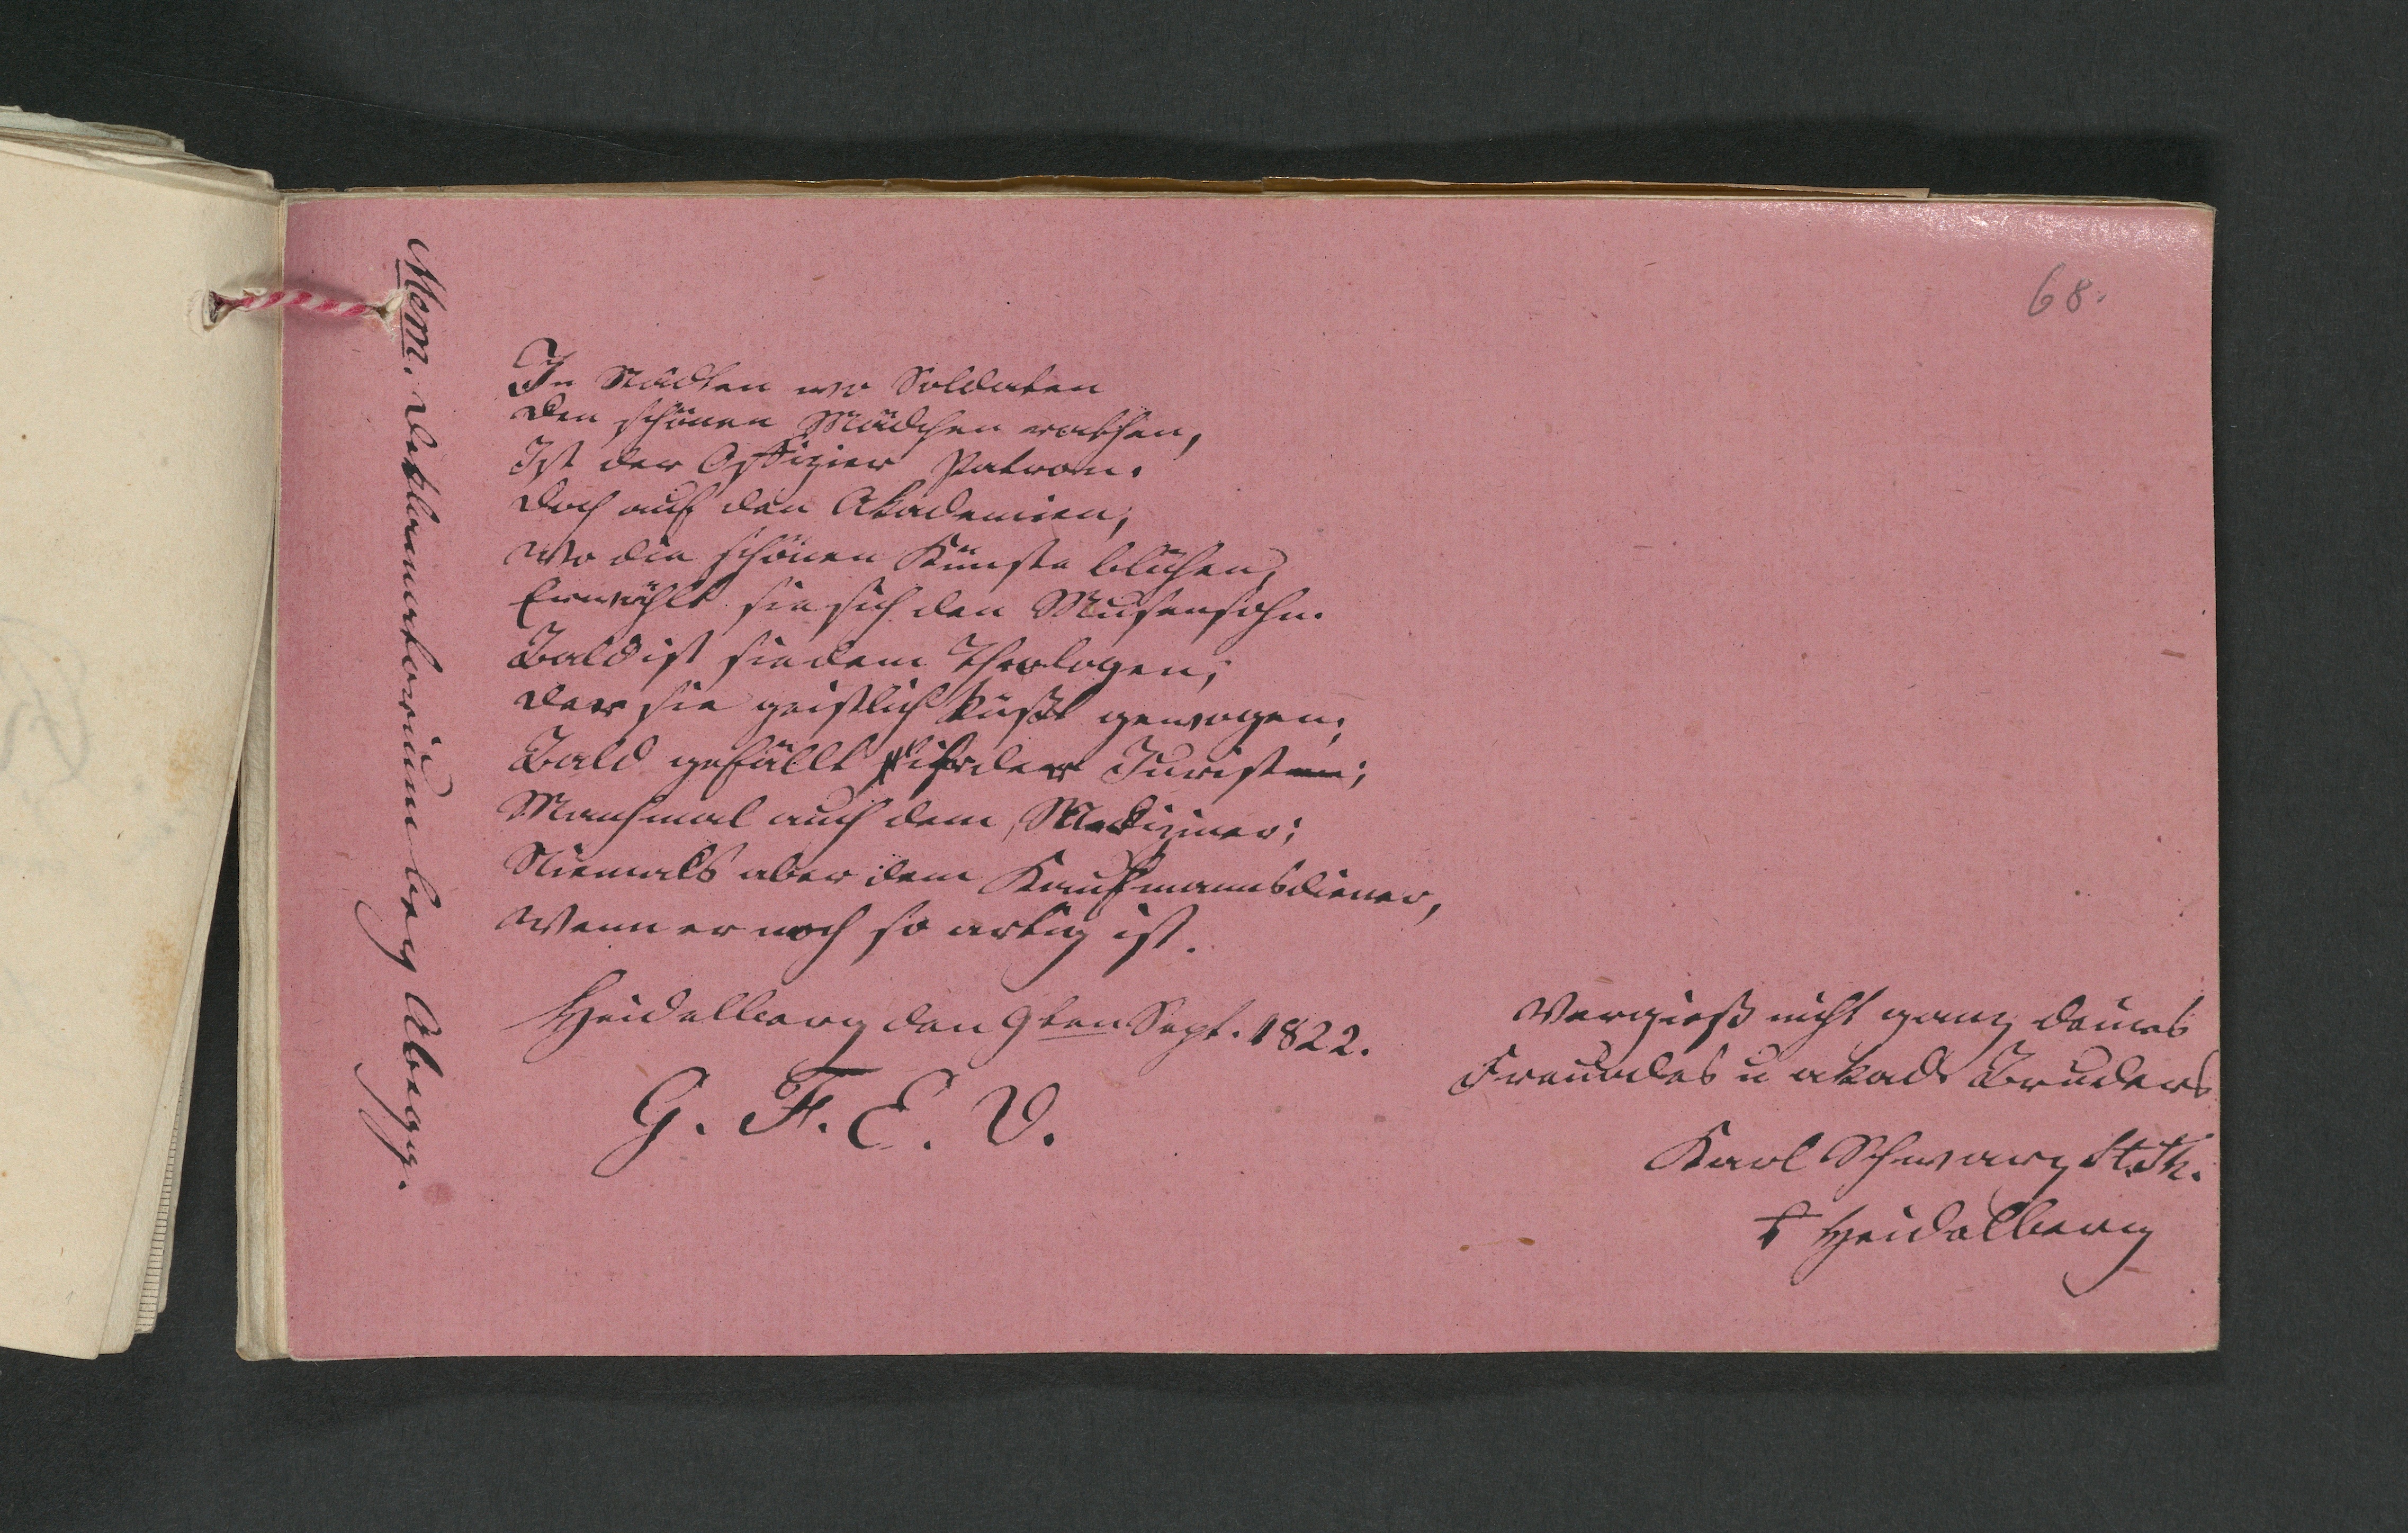 68.
Mem. Deklamatorium bey Abegg.
In Städten wo Soldaten
den schönen Mädchen rathen,
Ist der Offizier Patron.
doch auf den Akademien,
Wo die schönen Künste blühen,
Erwählt sie sich den Musensohn.
Bald ist sie dem Theologen,
der sie geistlich küßt gewogen;
Bald gefällt ihr der Jurist;
Manchmal auch dem Mediziner;
Niemals aber dem Kaufmannsdiener,
Wenn er noch so artig ist.
Heidelberg den 9ten Sept. 1822.
G. F. E. V.
Vergieß nicht ganz deines
Freundes u akad. Bruders
Karl Schwarz St. Th.
Heidelberg